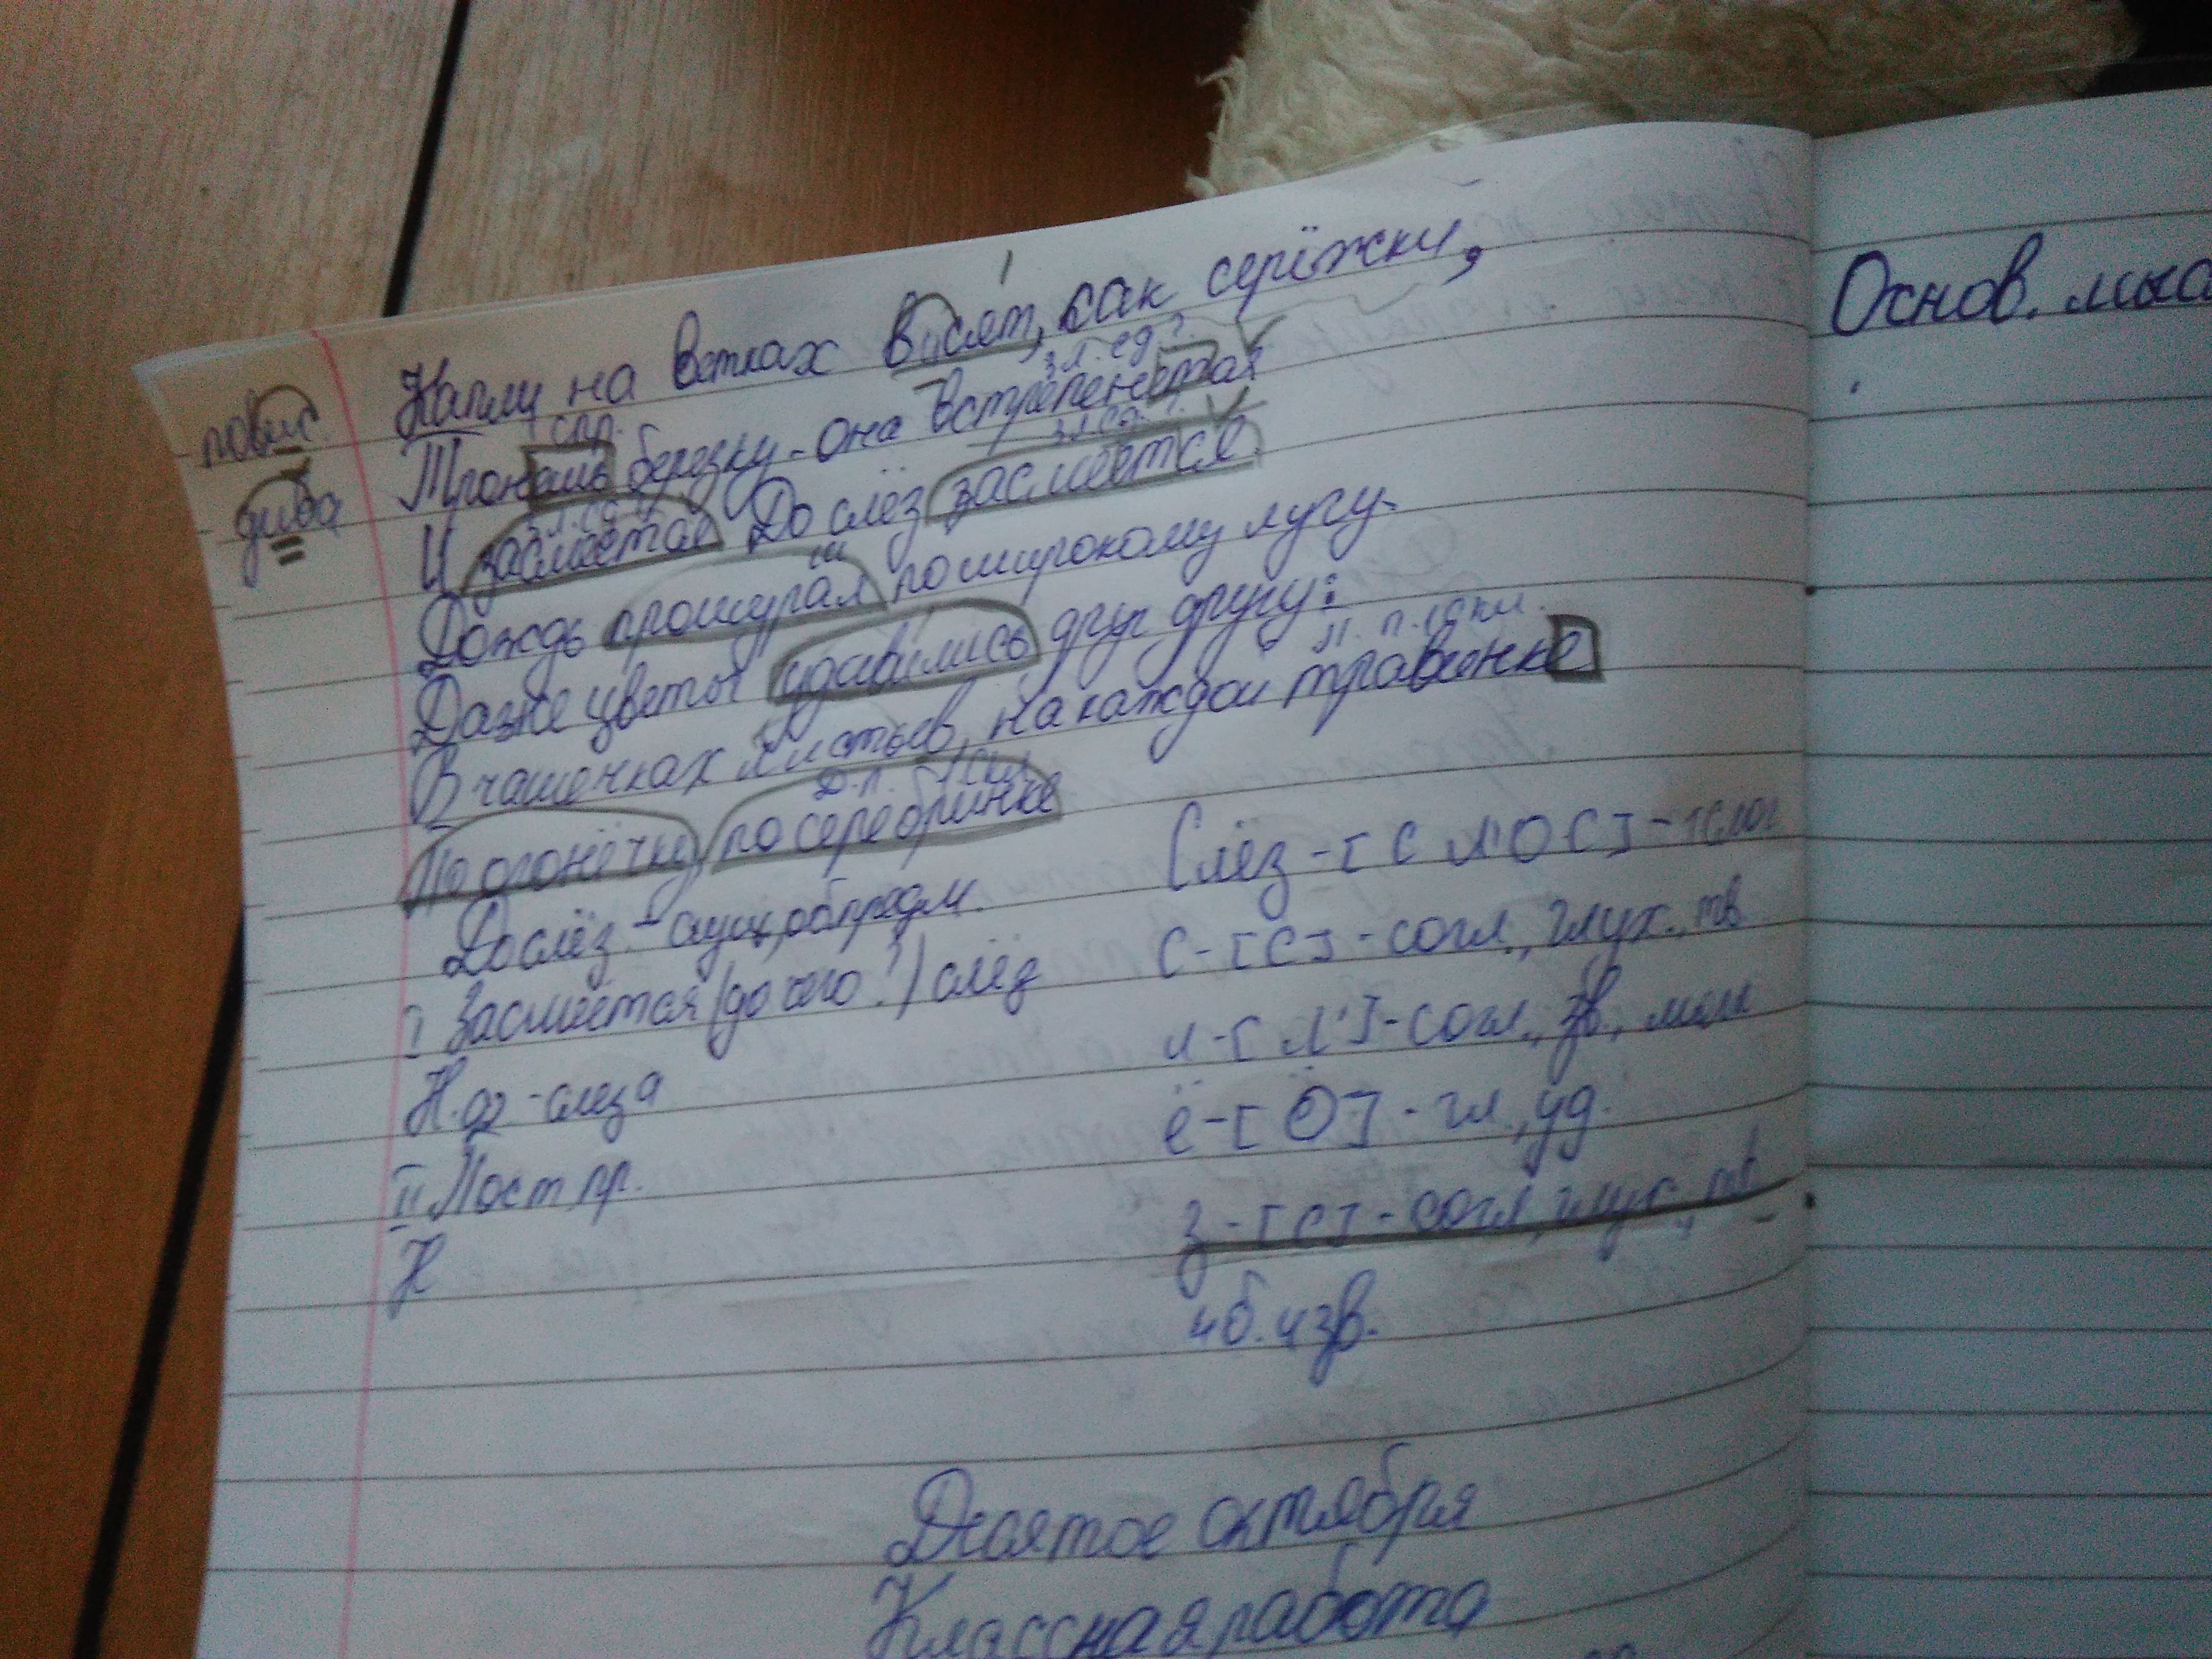 Капли на ветках висят, как серёжки,
зл. ед?
повис
спр.
Тронешь березку - она встрепенется
дива
И засмеётся До слёз засмеётся.
Дождь прошуршал по широкому лугу.
Даже цветы удивились друг другу:
П. п. 1 скл.
В чашечках листьев, на каждой травинке
Д. п. 1 скл
По огонёчку, по серебринке
До слёз - сущ., об. предм.
I Засмеётся (до чего?) слёз
Н.ф - слеза
II Пост. пр.
Н
Слёз - [С Л'ОС] - 1 слог
С - [С] - согл., глух., тв
л - [Л'] - согл., зв., мягк
ё - [О] - гл., уд.
з - [С] - согл, глух, тв
4б. 4зв.
Десятое октября
Классная работа
Основ.